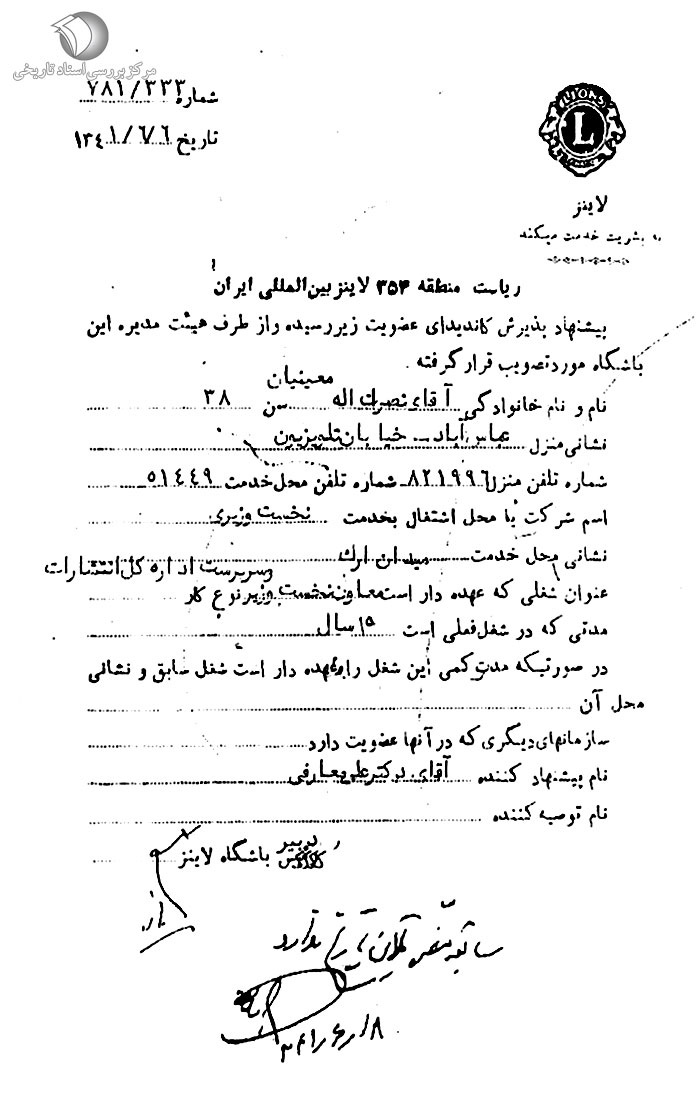 مرکز بررسی اسناد تاریخی
شماره ۷۸۱/۳۳۳
تاریخ ۱۳۴۱/۶/۶
LIONS
L
لاینز
به بشریت خدمت میکند
ریاست منطقه ۳۵۴ لاینز بین‌المللی ایران
پیشنهاد پذیرش کاندیدای عضویت زیر رسیده و از طرف هیئت مدیره این
باشگاه مورد تصویب قرار گرفته
نام و نام خانوادگی آقای نصرت اله معینیان سن ۳۸
نشانی منزل عباس آباد - خیابان تلویزیون
شماره تلفن منزل ۸۲۱۹۹۶ شماره تلفن محل خدمت ۵۱۴۴۹
اسم شرکت یا محل اشتغال بخدمت نخست وزیری
نشانی محل خدمت میدان ارك
عنوان شغلی که عهده دار است معاون نخست وزیر وسرپرست اداره کل انتشارات نوع کار
مدتی که در شغل فعلی است ۱۵ سال
در صورتیکه مدت کمی این شغل را بعهده دار است شغل سابق و نشانی
محل آن
سازمانهای دیگری که در آنها عضویت دارد
نام پیشنهاد کننده آقای دکتر علی معارفی
نام توصیه کننده
دبیر باشگاه لاینز
ندارد